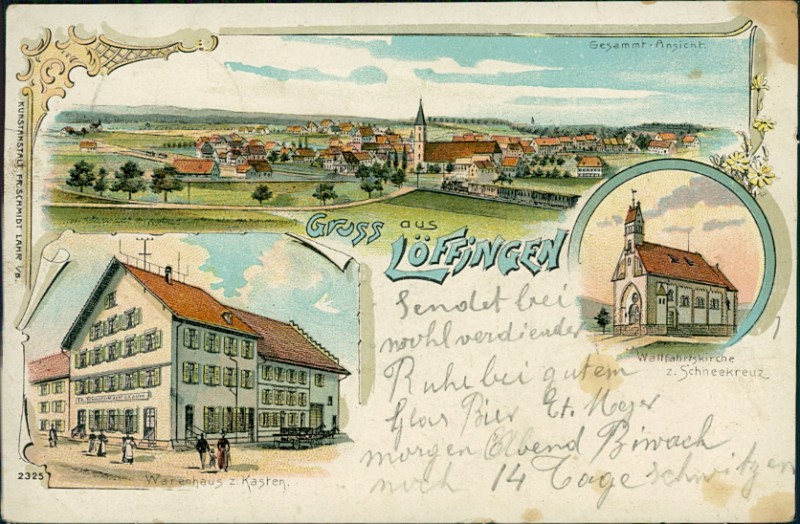 Gesammt-Ansicht.
KUNSTANSTALT FR. SCHMIDT LAHR i/B.
Gruss aus
LÖFFINGEN
Wallfahrtskirche
z. Schneekreuz
Warenhaus z. Kasten.
2325
Sendet bei
wohlverdiender
Ruhe bei gutem
Glas Bier Et. Meyer
morgen Abend Biwack
noch 14 Tage schwitzen